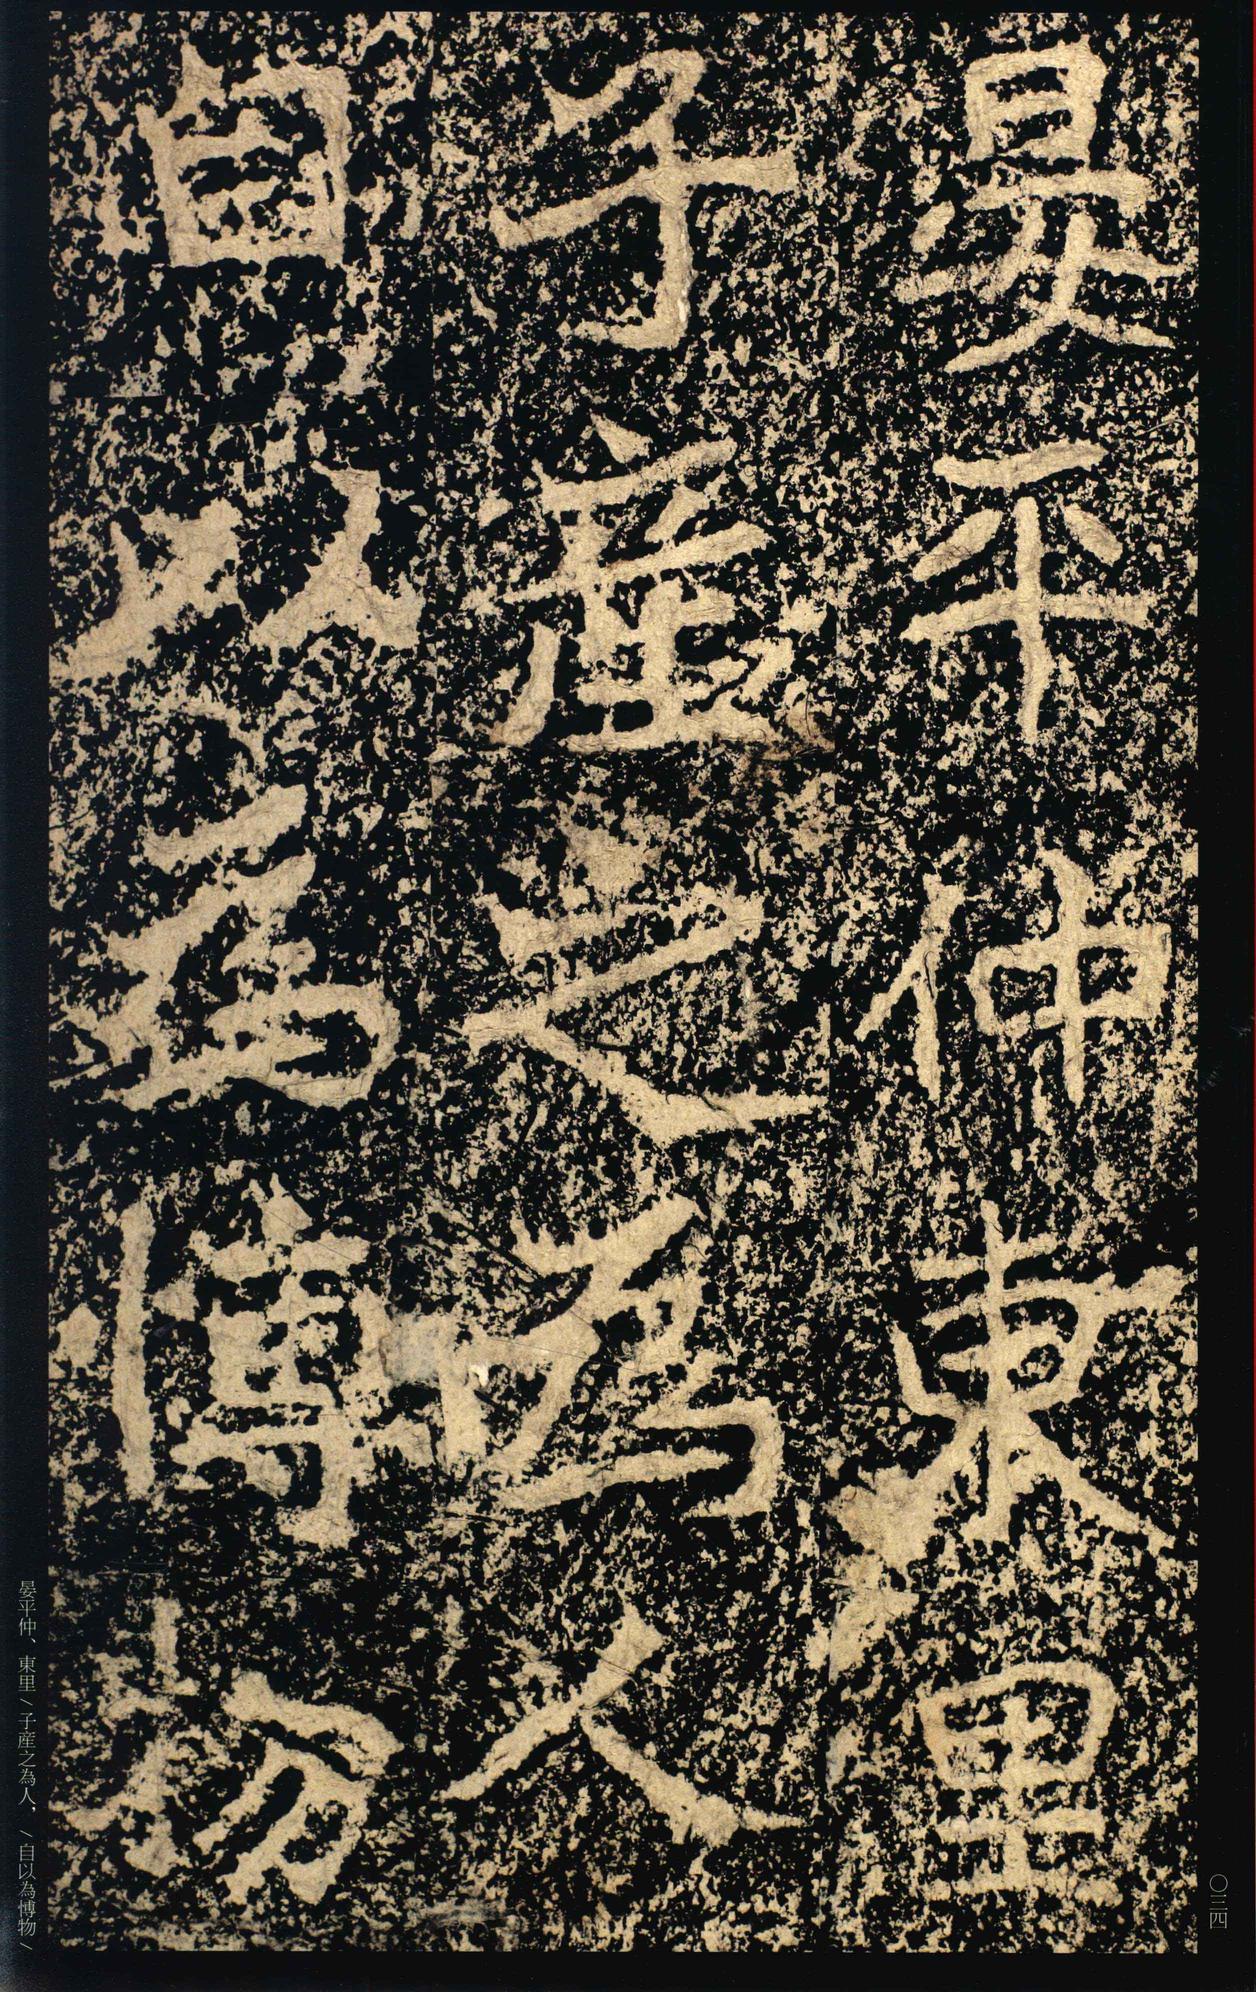 晏平仲東里
子產之為人
自以為博物
晏平仲、東里／子産之為人，／自以為博物／
〇三四